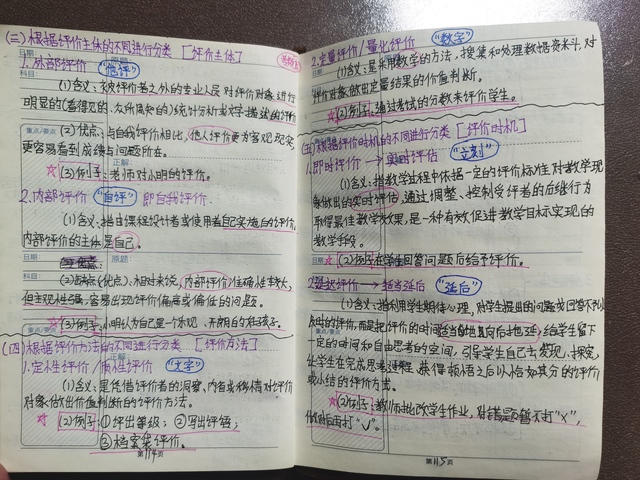 (三)根据评价主体的不同进行分类 [评价主体]
日期:
1.外部评价 "他评"
科目:
(1)含义:被评价者之外的专业人员对评价对象进行
明显的(看得见的、众所周知的)统计分析或文字描述的评价
重点/要点
(2)优点:与自我评价相比,他人评价更为客观现实,
更容易看到成绩与问题所在。
正解:
☆(3)例子:老师对小明的评价。
2.内部评价 "自评" 即自我评价
(1)含义:指由课程设计者或使用者自己实施的评价,
内部评价的主体是自己。
日期:
原题:
科目:
(2)(优点):相对来说,内部评价准确性较大,
但主观性强,容易出现评价偏高或偏低的问题。
重点/要点
☆(3)例子:小明认为自己是一个乐观、开朗的好孩子。
(四)根据评价方法的不同进行分类 [评价方法]
正解:
1.定性评价/质性评价 "文字"
(1)含义:是凭借评价者的洞察、内省或移情对评价
对象做出价值判断的评价方法。
☆(2)例子:①评出等级;②写出评语;
③档案袋评价。
第114页
2.定量评价/量化评价 "数字"
(1)含义:是采用数学的方法,搜集和处理数据资料,对
评价对象做出定量结果的价值判断。
☆(2)例子:通过考试的分数来评价学生。
(五)根据评价时机的不同进行分类 [评价时机]
1.即时评价 → 实时评估 "立刻"
(1)含义:指教学过程中依据一定的评价标准对教学现
象做出的实时评估,通过调整、控制受评者的后继行为
取得最佳教学效果,是一种有效促进教学目标实现的
教学手段。
日期:
☆(2)例子:在学生回答问题后给予评价。
2.延迟评价 → 适当延后 "延后"
(1)含义:指利用学生期待心理,对学生提出的问题或回答不予
及时的评价,而是把评价的时间适当的向后拖延,给学生留下
一定的时间和自由思考的空间,引导学生自己去发现、探索,
让学生在完成思考过程、获得顿悟之后以恰如其分的评价
或小结的评价方式。
☆(2)例子:教师对批改学生作业,对错题暂不打"×",
做对后再打"√"。
第115页